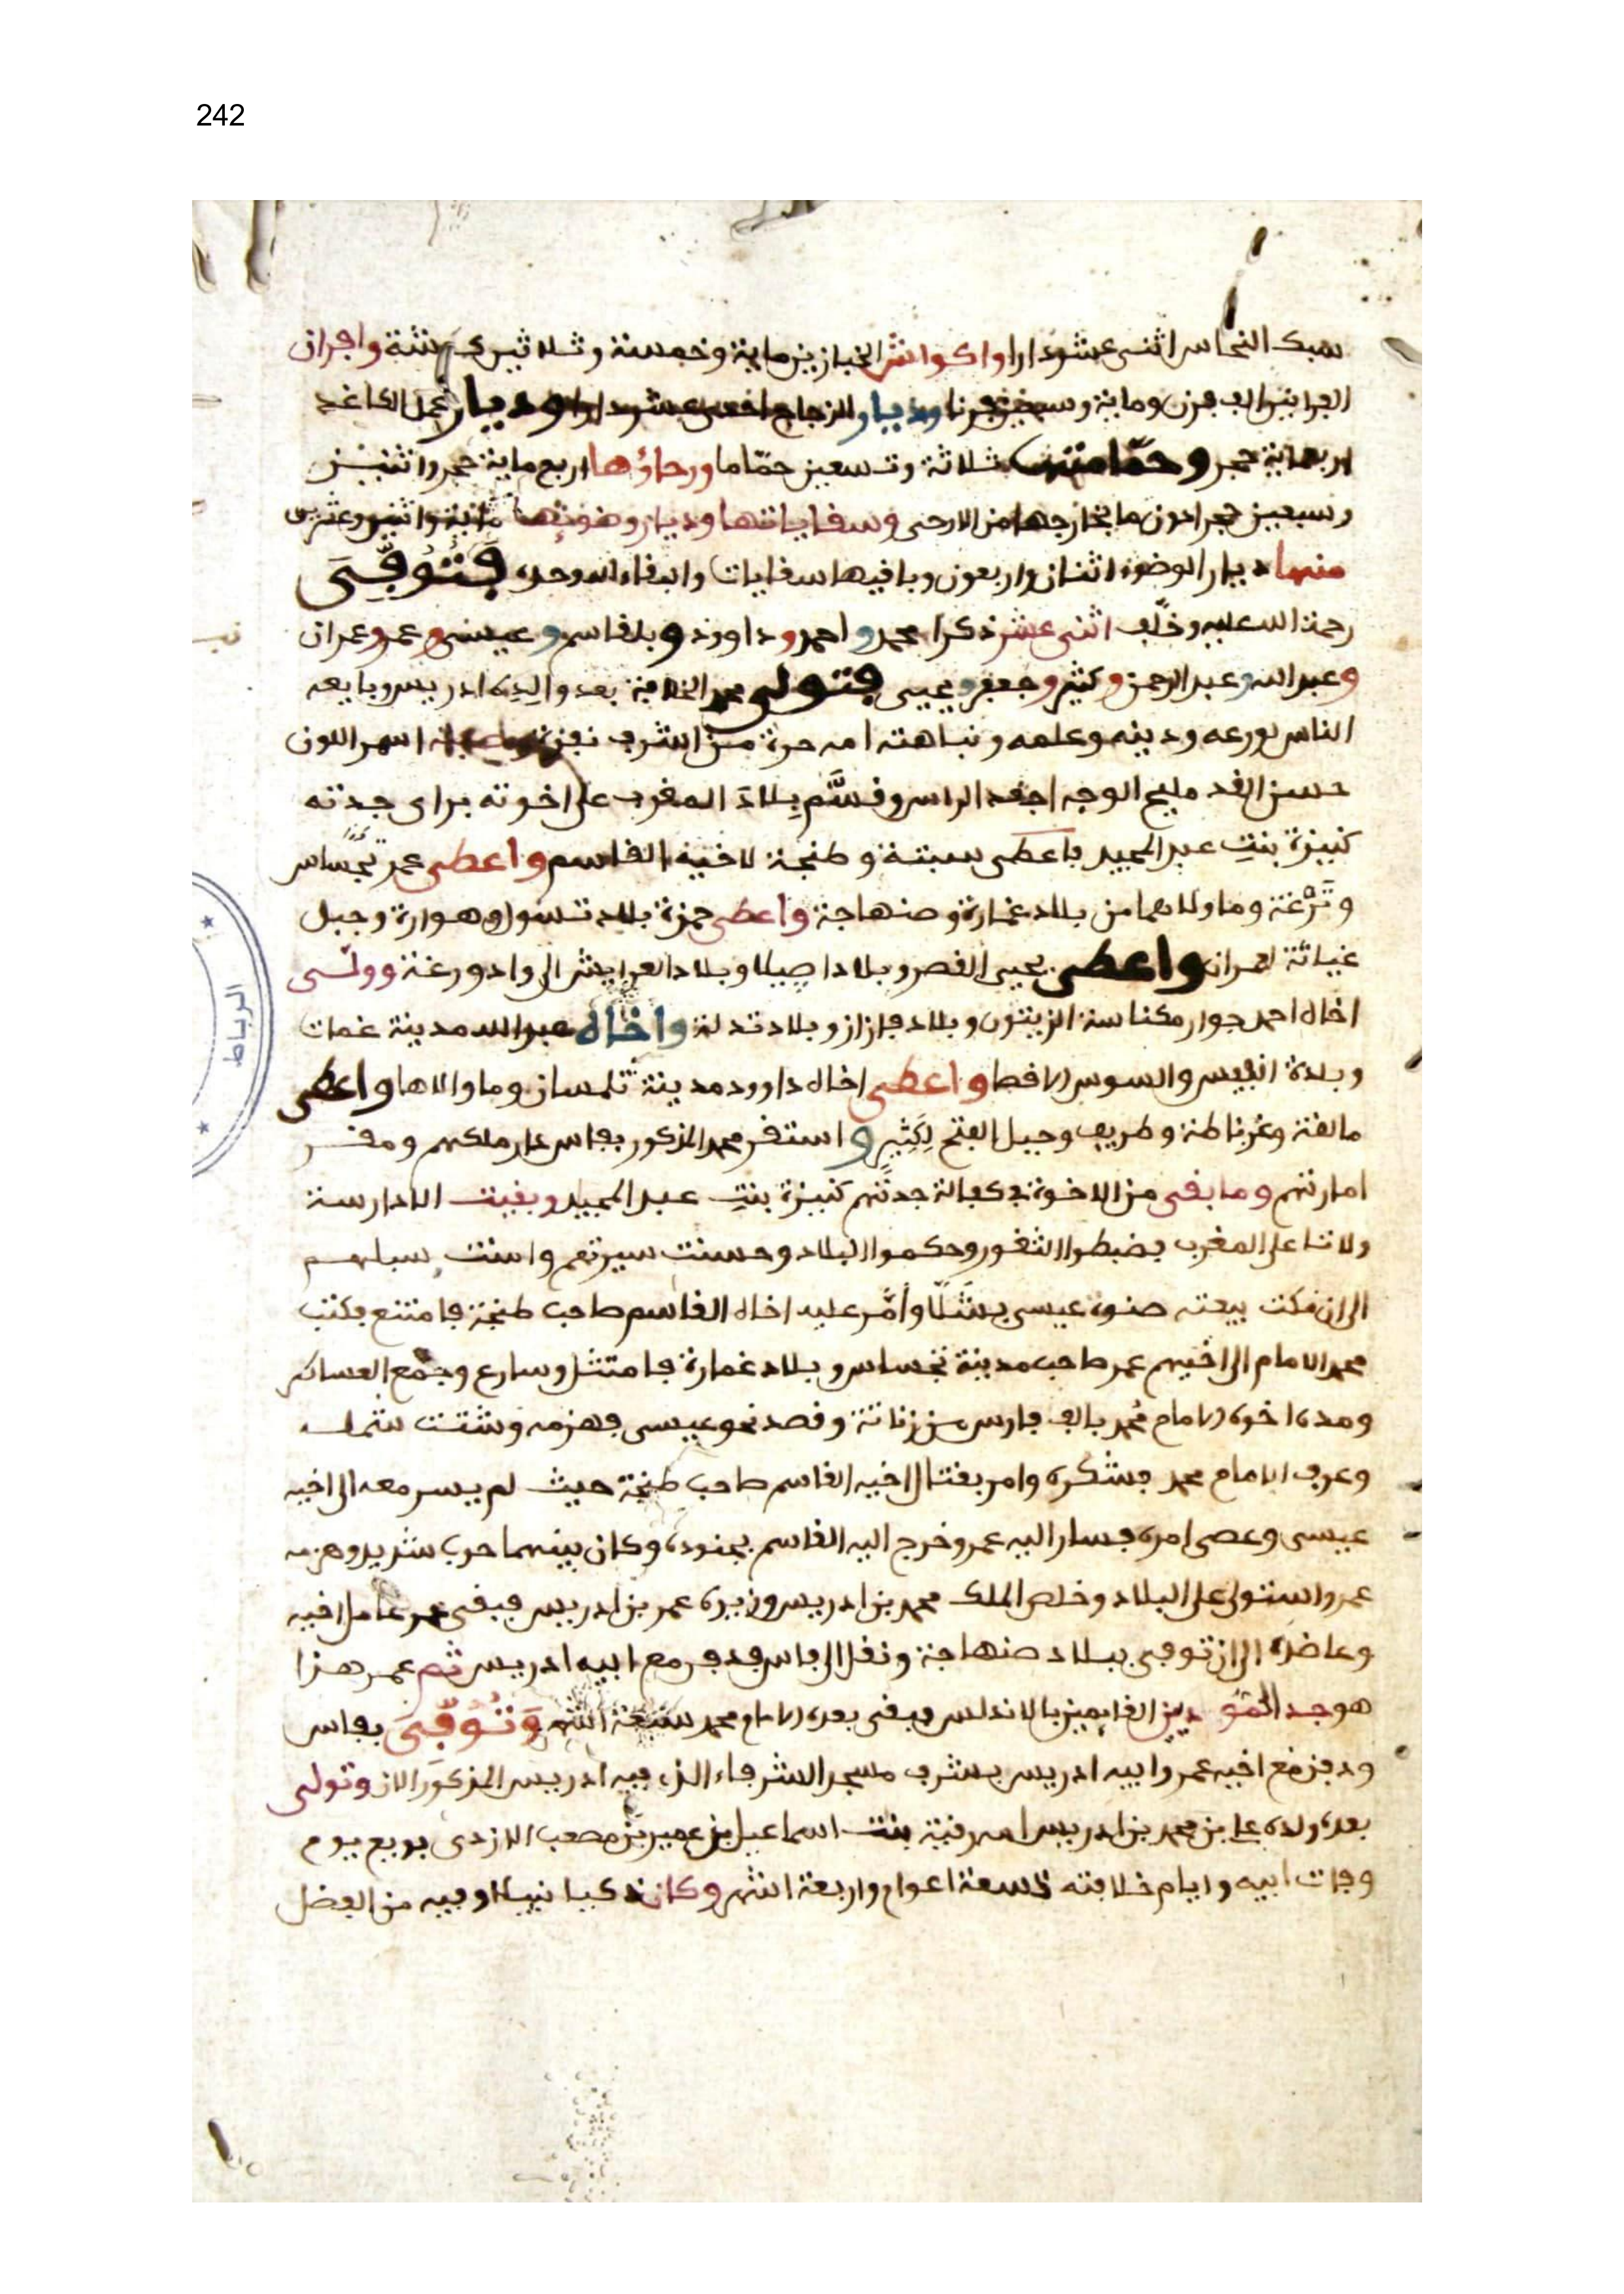 242
سبك النحاس اثنى عشر دارا واكواش الخبازين ماية وخمسة وثلاثين كوشة وافران
الجرانين الف فرن وماية وسبعين فرنا وديار الزجاج احدى عشر دارا وديار عمل الكاغد
اربعماية حجر وحمامتها ثلاثة وتسعين حمّاما ورحاؤها اربع ماية حجر واثنين
وسبعين حجرا دون ما بخارجها من الارحى وسقاياتها وديار وضوئها مائية واثنين وعشرين
منها ديار الوضوء اثنان واربعون وباقيها سقايات والبقاء لله وحده فَتُوُفِّىَ
رحمة الله عليه وخلّف اثنى عشر ذكرا محمد و احمد و داوود و بلقاسم و عيسى و عمر و عمران
و عبد الله و عبد الرحمن و كثير و جعفر و يحيى فتولى محمد الخلافة بعد والدِه ادريس وبايعه
الناس لورعه ودينه وعلمه ونباهته امه حرة من اشرف نفزة اسمر اللون
حسن القد مليح الوجه اجعد الراس وقسَّم بِلادَ المغرب على اخوته براى جدته
كنيزة بنتِ عبد المجيد فاعطى سبتة وطنجة لاخيه القاسم واعطى عمر تجساس
وتَرْغة وما ولاهما من بلاد غمارة وصنهاجة واعطى حمزة بلاد تسول وهوارة وجبل
غياتة لعمران واعطى يحيى القصر وبلاد اصيلا وبلاد العرايش الى واد ورغة وولّى
اخاه احمد جوار مكناسة الزيتون وبلاد فازاز وبلاد تدلة واخاه عبد الله مدينة غمات
وبلدة انفيس والسوس الاقصا واعطى اخاه داوود مدينة تلمسان وما والاها واعطى
مالقة وغرناطة وطريف وجبل الفتح لِكَثِيرٍ و استقر محمد المذكور بفاس دار ملكهم ومقر
امارتهم وما بقى من الاخوة فى كفالة جدتهم كنيزة بنتِ عبد المجيد وبقيت الادارسة
ولاتا على المغرب فضبطوا الثغور وحكموا البلاد وحسنت سيرتهم وامنت سبلهم
الى ان نكث بيعته صنوه عيسى بشَلّا وأمَّر عليه اخاه القاسم صاحب طنجة فامتنع فكتب
محمد الامام الى اخيهم عمر صاحب مدينة تجساس وبلاد غمارة فامتثل وسارع وجمع العساكر
ومده اخوه الامام محمد بالف فارس من زناتة وقصد نحو عيسى فهزمه وشتت شمله
وعرف الامام محمد فشكره وامر بقتال اخيه القاسم صاحب طنجة حيث لم يسر معه الى اخيه
عيسى وعصى امره فسار اليه عمر وخرج اليه القاسم بجنوده وكان بينهما حرب شديد وهزمه
عمر واستولى على البلاد وخلص الملك محمد بن ادريس وزيره عمر بن ادريس فبقى عمر عامل اخيه
وعاضده الى ان توفى ببلاد صنهاجة ونقل الى فاس فدفن مع ابيه ادريس ثم عمر هذا
هو جد الحمّوديين القايمين بالاندلس فبقى بعده الامام محمد سبعة اشهر وَتُوُفِّىَ بفاس
ودفن مع اخيه عمر وابيه ادريس بشرف مسجد الشرفاء الذى فيه ادريس المذكور الان وتولى
بعده ولده على بن محمد بن ادريس امه رقية بنت اسماعيل بن عمير بن مصعب الازدى بويع يوم
وفات ابيه وايام خلافته تسعة اعوام واربعة اشهر وكان ذكيا نبيلا وفيه من الفضل
الرباط